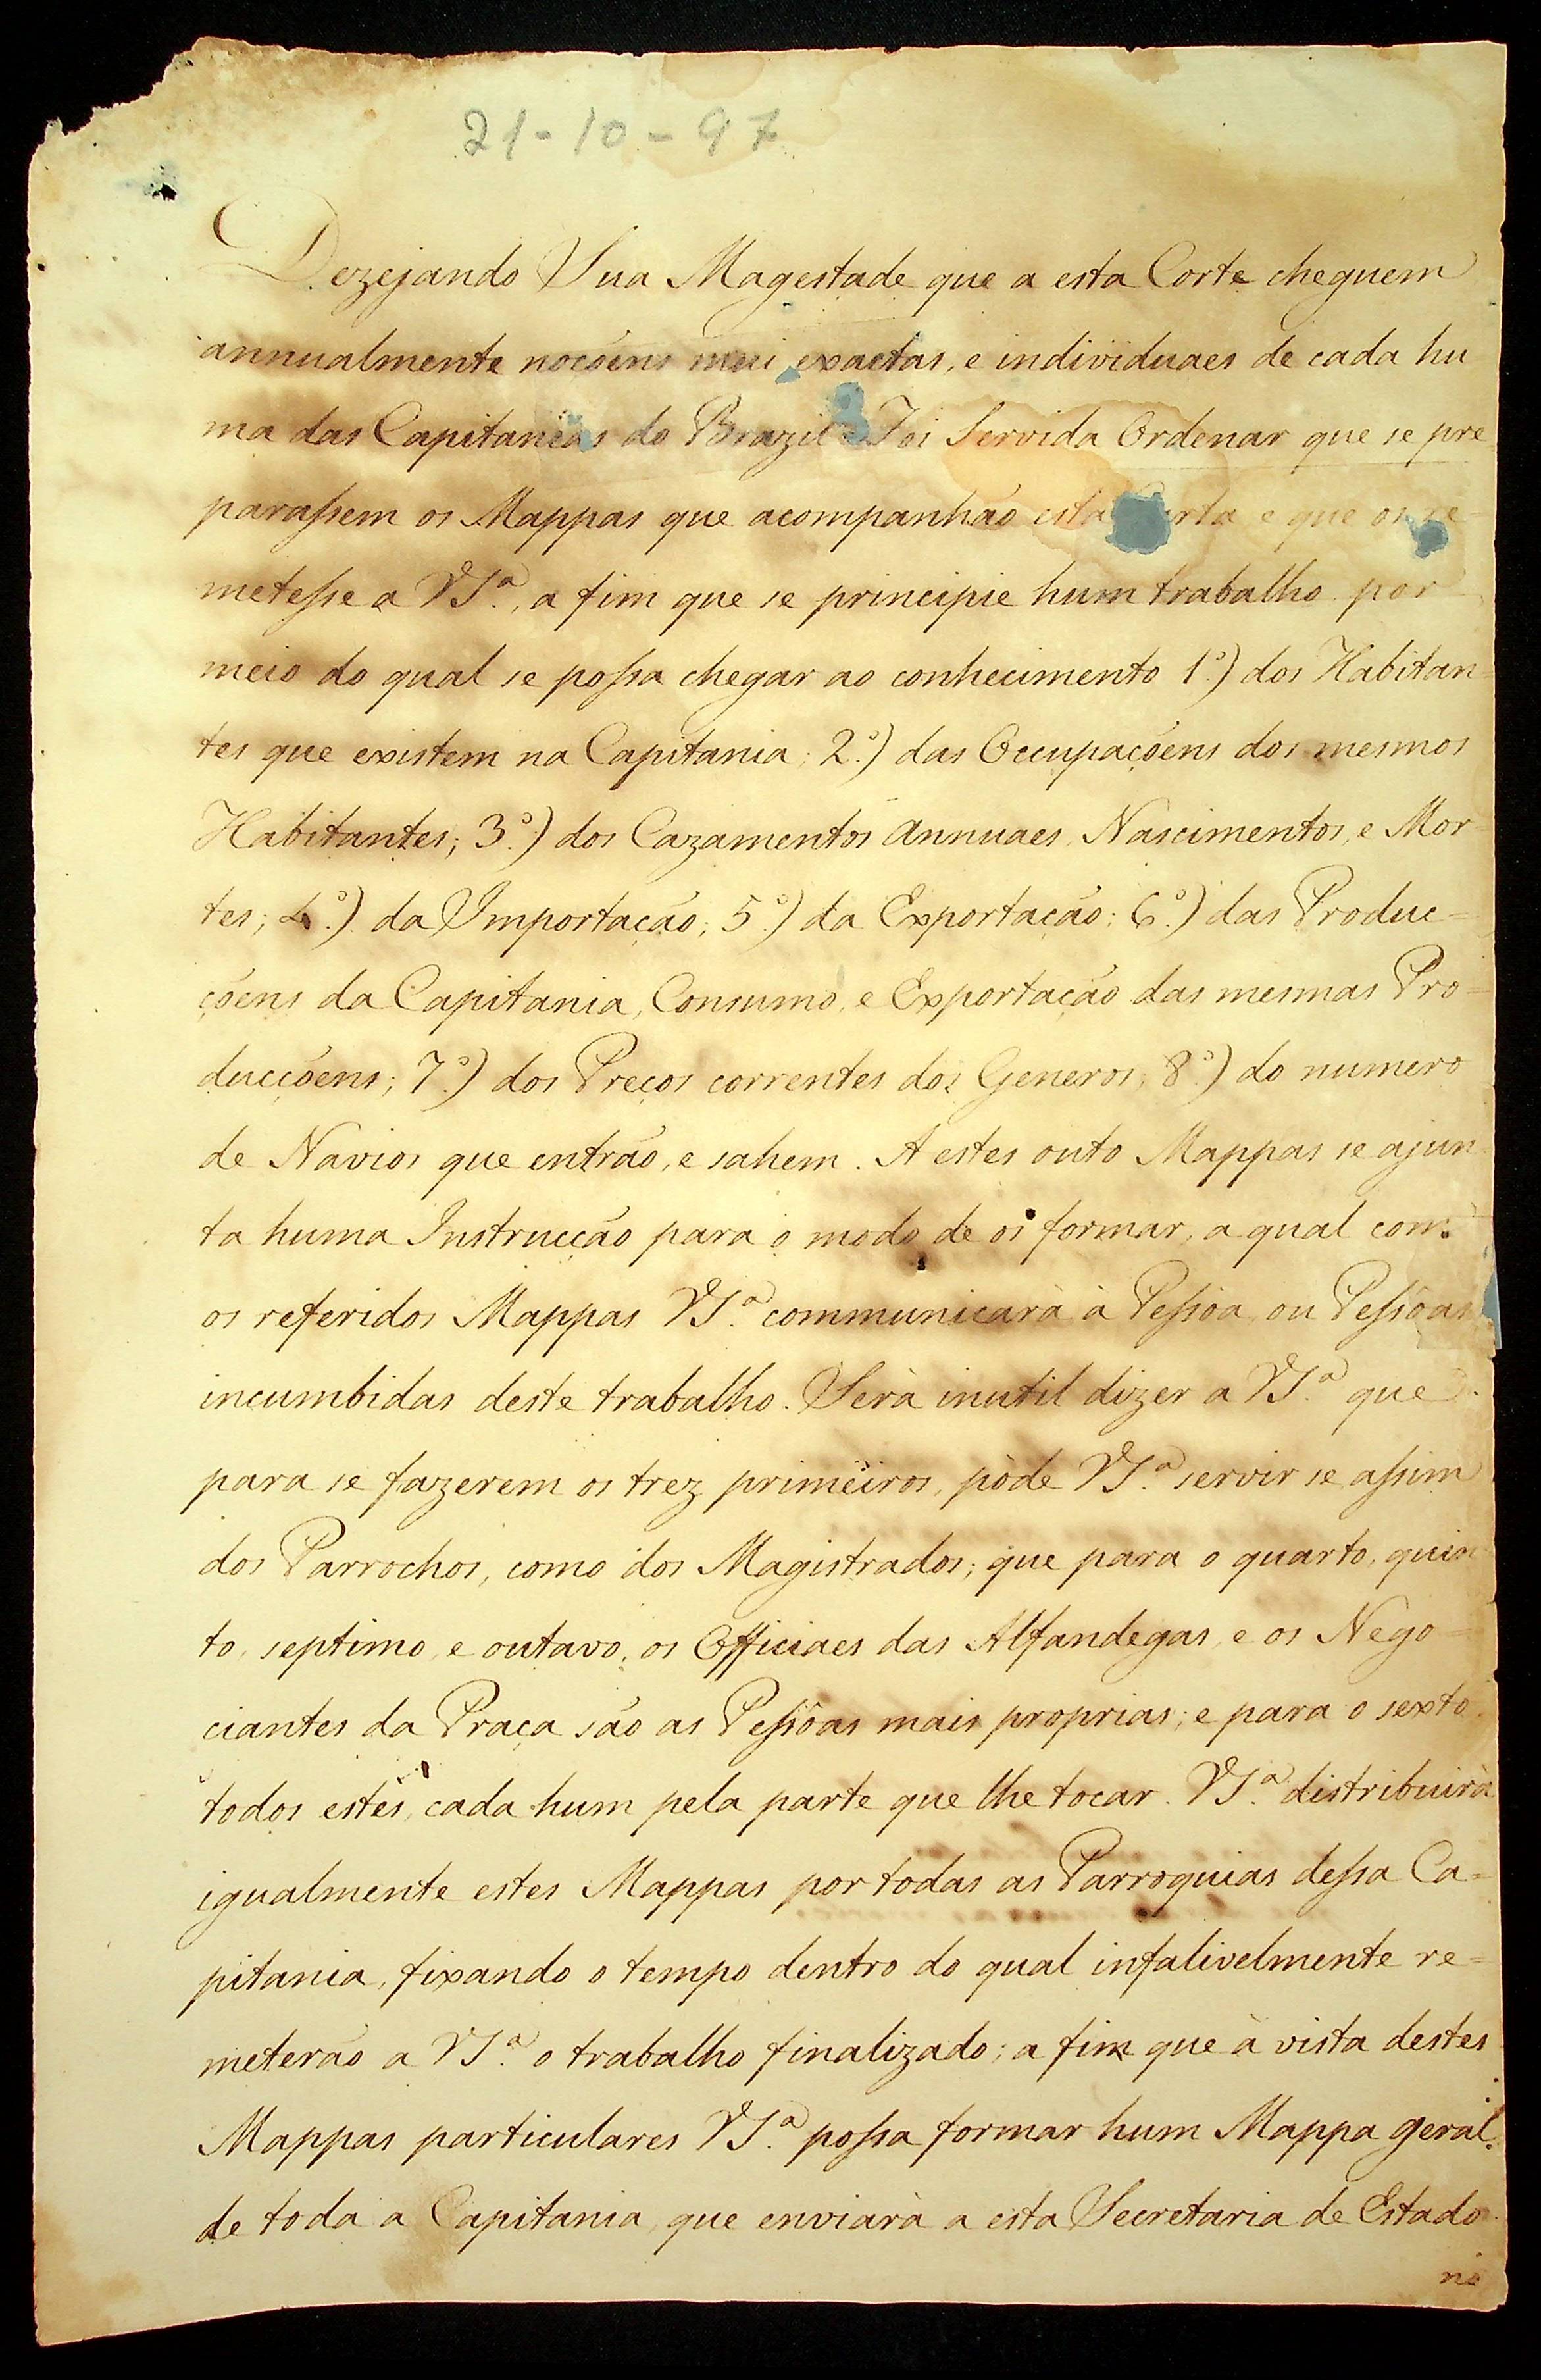 21-10-97
Dezejando Sua Magestade que a esta Corte cheguem
annualmente noçoens mui exactas, e individuaes de cada hu
ma das Capitanias do Brazil Foi Servida Ordenar que se pre
parassem os Mappas que acompanhão esta e que os re-
metesse a VSª., a fim que se principie hum trabalho por
meio do qual se possa chegar ao conhecimento 1.º) dos Habitan-
tes que existem na Capitania; 2.º) das Occupaçoens dos mesmos
Habitantes; 3.º) dos Cazamentos annuaes, Nascimentos, e Mor-
tes; 4.º) da Importação; 5.º) da Exportação; 6.º) das Produc=
çoens da Capitania, Consumo, e Exportação das mesmas Pro=
ducçoens; 7.º) dos Preços correntes dos Generos; 8.º) do numero
de Navios que entrão, e sahem. A estes outo Mappas se ajun
ta huma Instrucção para o modo de os formar, a qual com
os referidos Mappas VSª. communicarà à Pessôa, ou Pessôas
incumbidas deste trabalho. Serà inutil dizer a VSª. que
para se fazerem os trez primeiros, pòde VSª. servir se assim
dos Parrochos, como dos Magistrados; que para o quarto, quin
to, septimo, e outavo, os Officiaes das Alfandegas, e os Nego=
ciantes da Praça são as Pessôas mais proprias; e para o sexto
todos estes, cada hum pela parte que lhe tocar. VSª. distribuirà
igualmente estes Mappas por todas as Parroquias dessa Ca=
pitania, fixando o tempo dentro do qual infalivelmente re=
meterão a VSª. o trabalho finalizado; a fim que à vista destes
Mappas particulares VSª. possa formar hum Mappa geral
de toda a Capitania, que enviarà a esta Secretaria de Estado
no